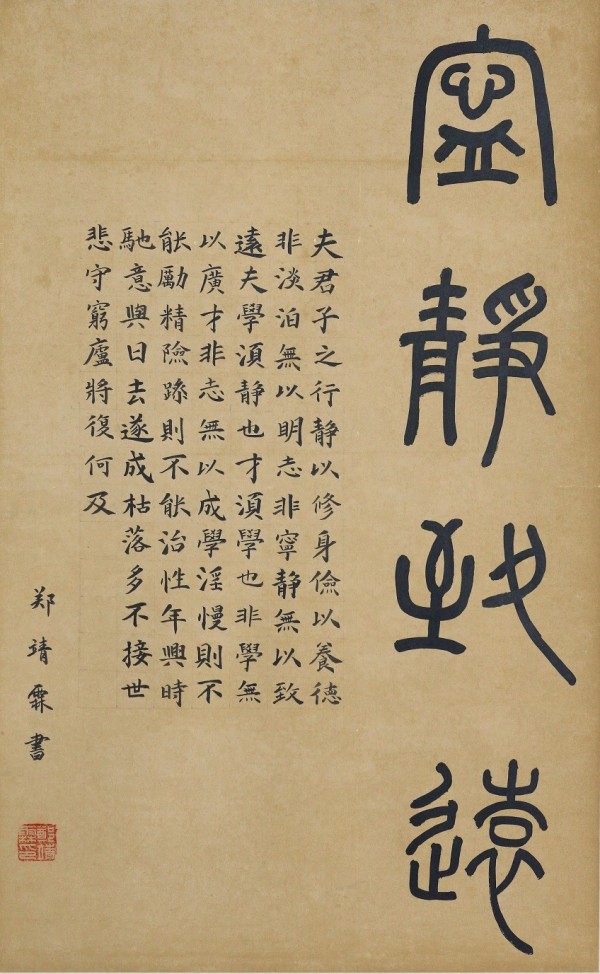 寧靜致遠
夫君子之行静以修身儉以養德
非淡泊無以明志非寧静無以致
遠夫學湏静也才湏學也非學無
以廣才非志無以成學淫慢則不
能勵精險躁則不能治性年與時
馳意與日去遂成枯落多不接世
悲守窮廬將復何及
郑靖霖書